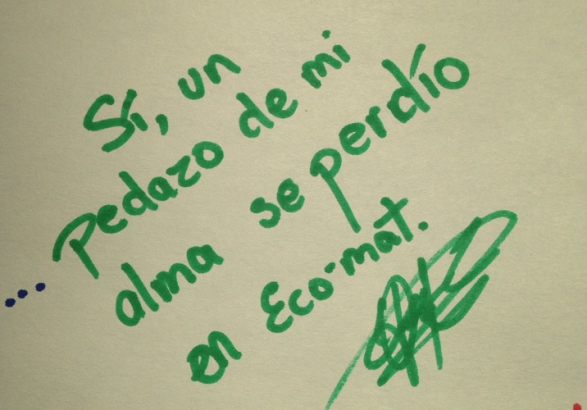 Sí, un
pedazo de mi
alma se perdío
en Eco-mat.
...